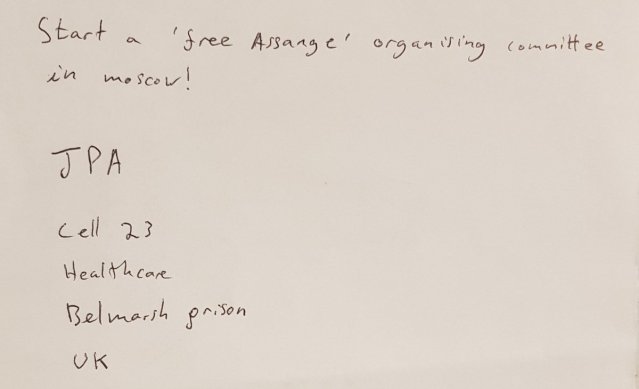 Start a 'free Assange' organising committee
in moscow!
JPA
Cell 23
Healthcare
Belmarsh prison
UK